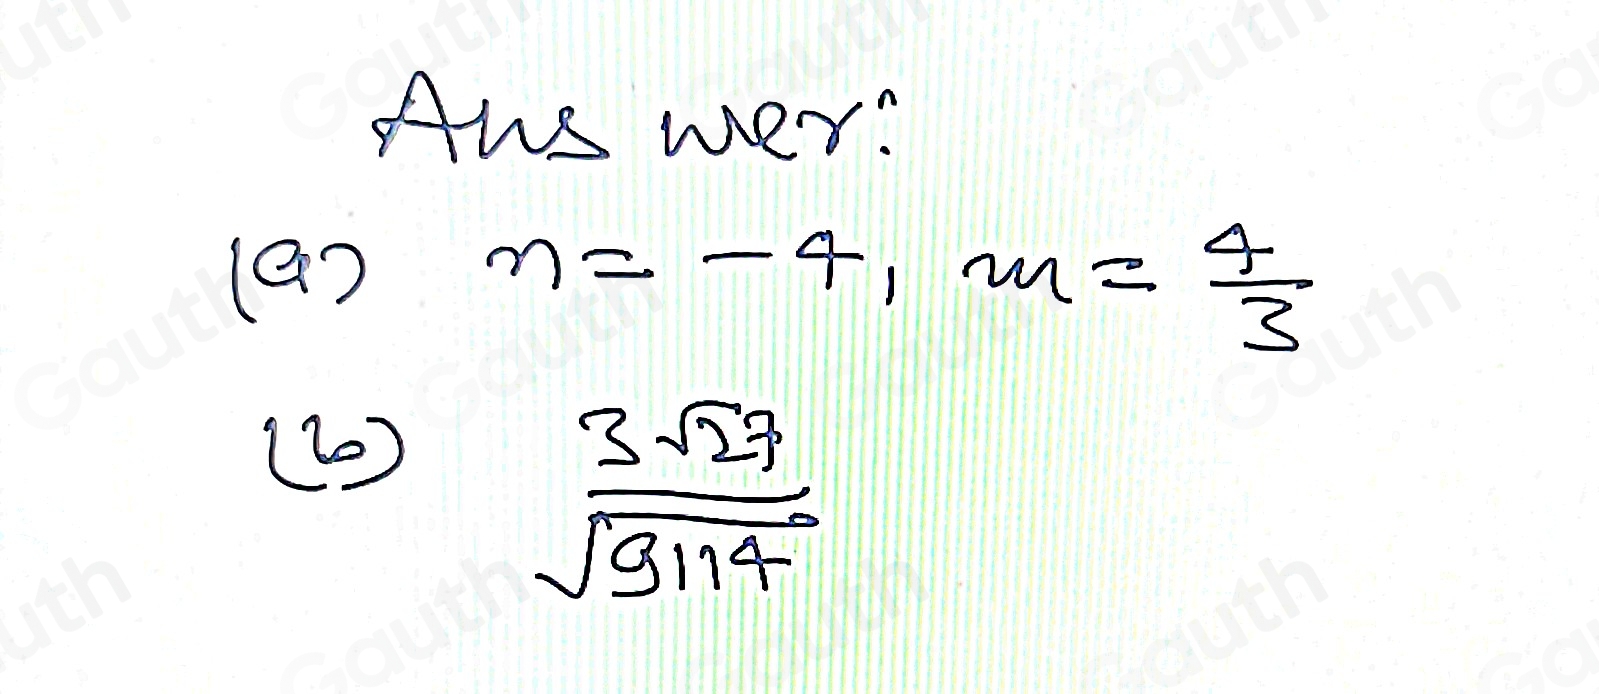 Answer:
(a) n = -4, m = 4/3
(b) 3√27 / √9114